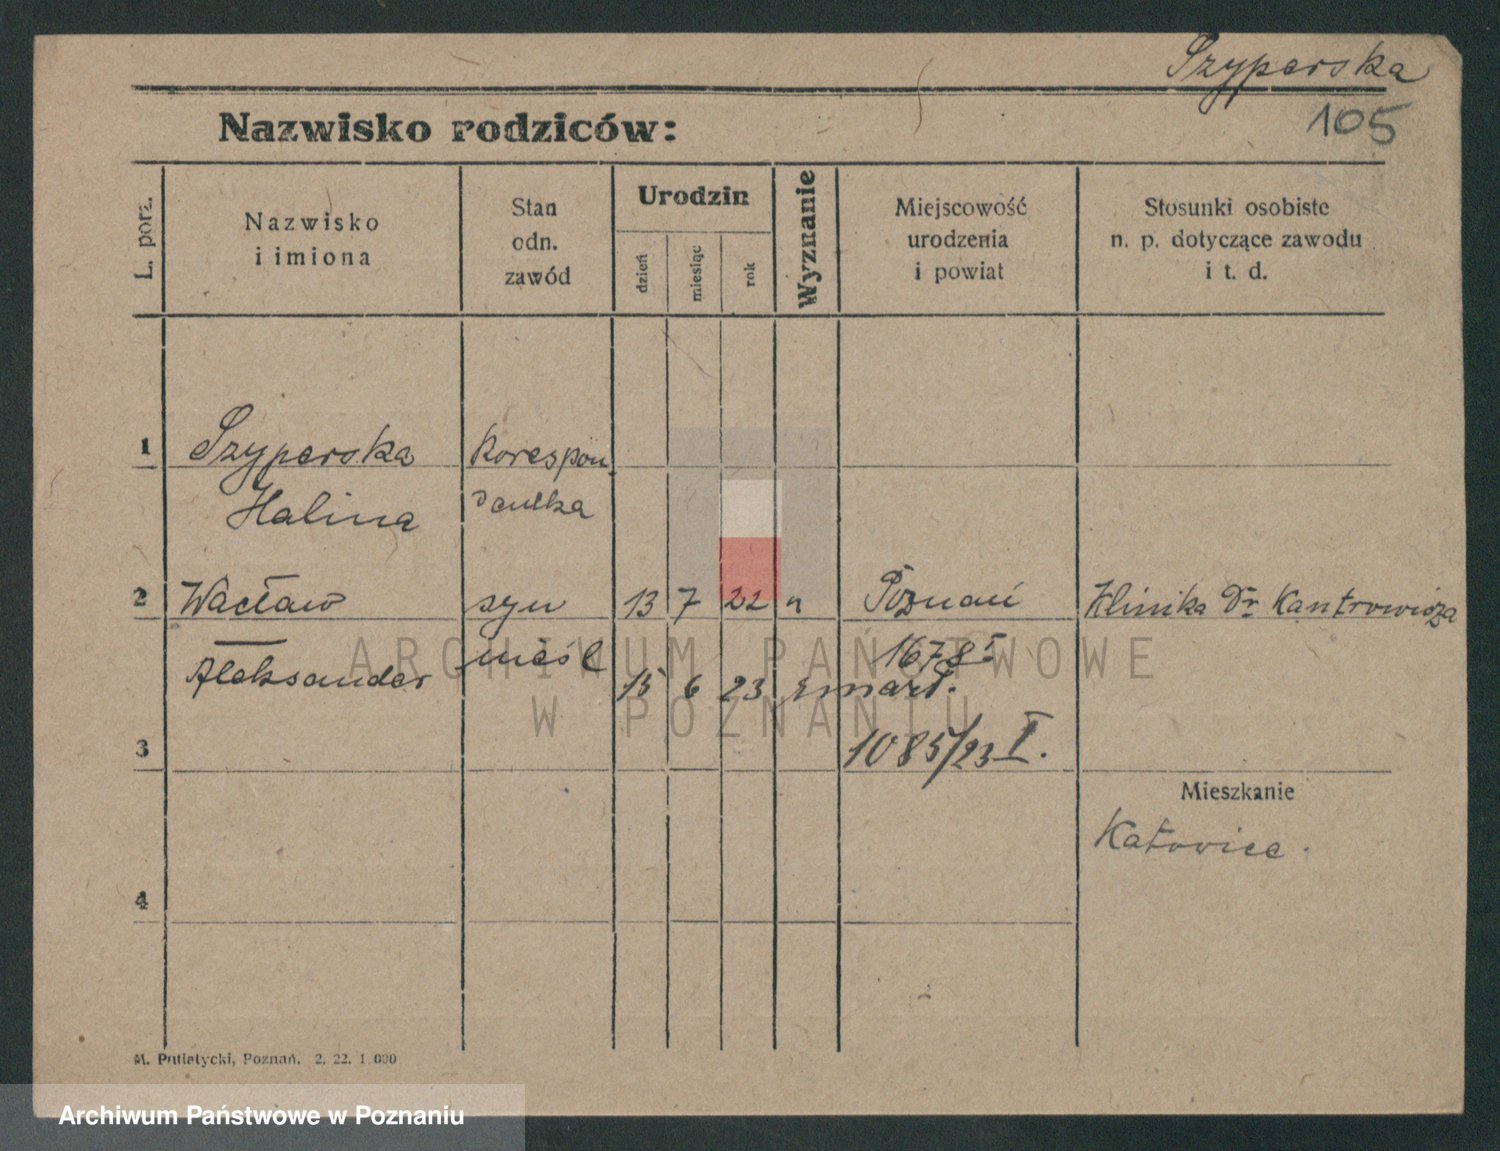 Szyperska
105
Nazwisko rodziców:
L. porz.
Nazwisko
i imiona
Stan
odn.
zawód
Urodzin
dzień
miesiąc
rok
Wyznanie
Miejscowość
urodzenia
i powiat
Stosunki osobiste
n. p. dotyczące zawodu
i t. d.
1
Szyperska
Korespon
Halina
dentka
2
Wacław
syn
13 7 22
n
Poznań
Klinika Dr Kantrowicza
Aleksander
nieśl
1678 I
15 6 23 zmarł.
3
1085/23 I.
Mieszkanie
Katowice.
4
M. Putiatycki, Poznań. 2. 22. 1.000
ARCHIWUM PAŃSTWOWE
W POZNANIU
Archiwum Państwowe w Poznaniu